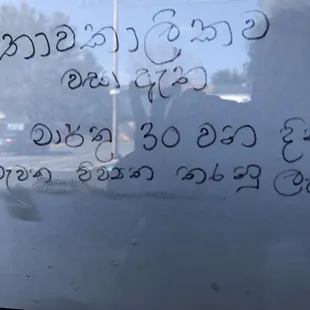 තාවකාලිකව
වසා ඇත
මාර්තු 30 වන දින
විවෘත කරනු